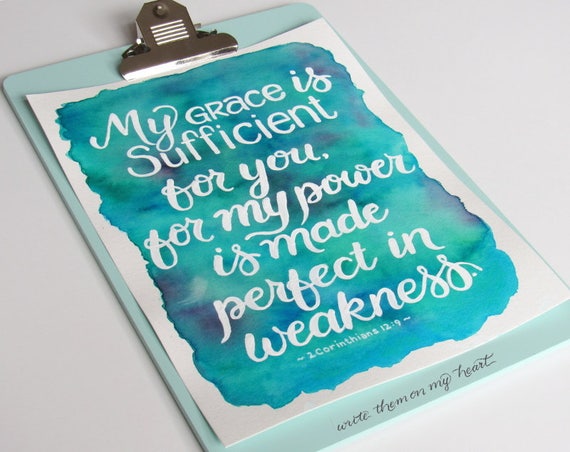 My GRACE is
Sufficient
for you,
for my power
is made
perfect in
weakness.
~ 2 Corinthians 12:9 ~
write them on my heart